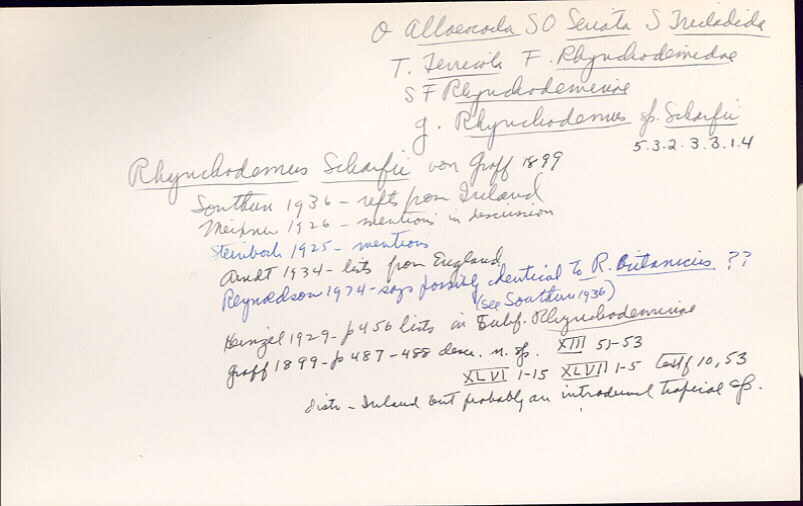 O Alloeocoela SO Seriata S Tricladida
T. Terricola F. Rhynchodemidae
SF Rhynchodeminae
g. Rhynchodemus sp. Scharffi
5.3.2.3.3.1.4
Rhynchodemus Scharffi von Graff 1899
Southern 1936 - repts from Ireland
Meixner 1926 - mentions in discussion
Steinbock 1925 - mentions
Arndt 1934 - lists from England
Reynoldson 1974 - says possibly identical to R. Britanicus ??
(see Southern 1936)
Heinzel 1929 - p 456 lists in Subf. Rhynchodeminae
Graff 1899 - p 487-488 descr. n. sp. XIII 51-53
XLVI 1-15 XLVII 1-5 textf 10, 53
distr - Ireland but probably an introduced tropical sp.